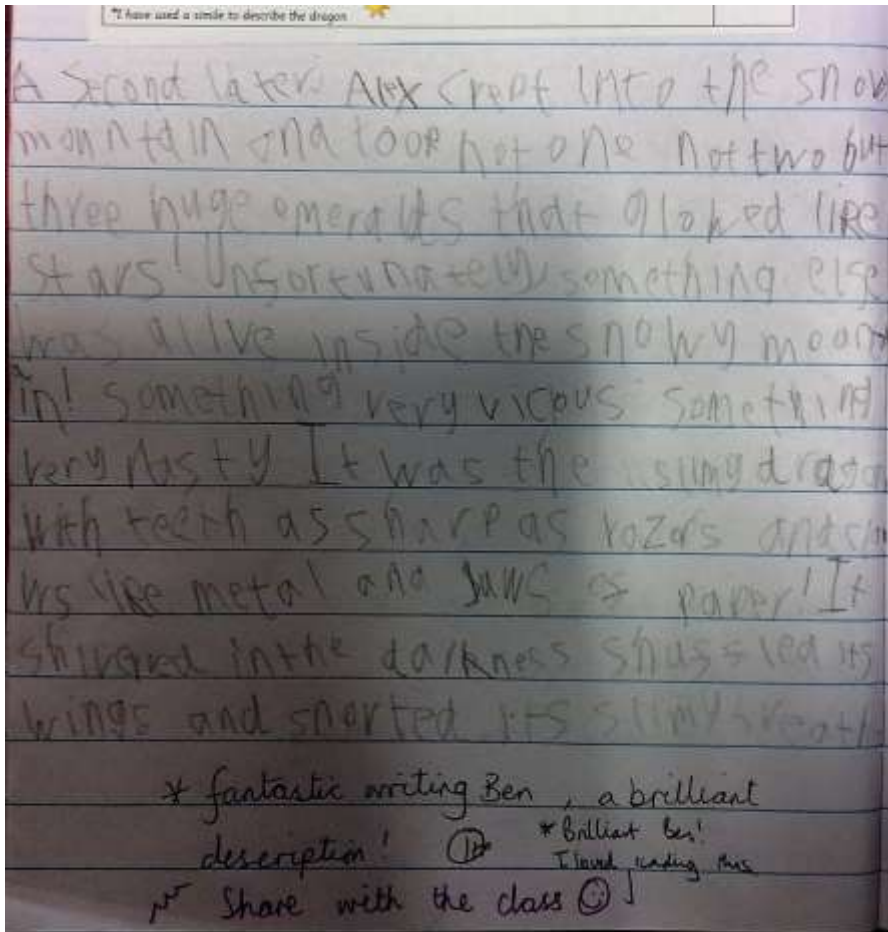 *I have used a simile to describe the dragon
A second later Alex crept into the snow
mountain and took not one not two but
three huge emeralds that glowed like
stars! Unfortunately, something else
was alive inside the snowy mount
in! something very vicous something
very Nasty It was the slimy dragon
with teeth as sharp as razors and cla
ws like metal and Jaws of paper! It
shivered in the darkness shuffled its
wings and snorted its slimy breath
* fantastic writing Ben, a brilliant
description!
* Brilliant Ben!
I loved reading this
Share with the class